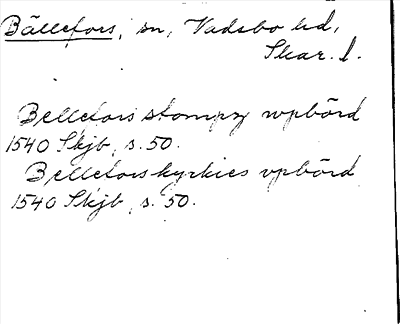 Bällefors, sn, Vadsbo hd,
Skar. l.
Bellefors stompn wpbörd
1540 Skjb, s. 50.
Bellefors kyrkies vpbörd
1540 Skjb, s. 50.